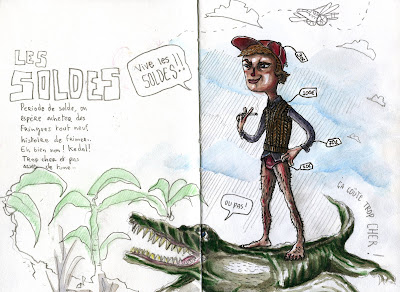 LES
SOLDES
Periode de solde, on
espère acheter des
fringues tout neuf
histoire de frimer..
Eh bien non! Kedal!
Trop cher et pas
assez de tune..
Vive les
SOLDES!!
OU PAS!
ÇA COÛTE TROP CHER!